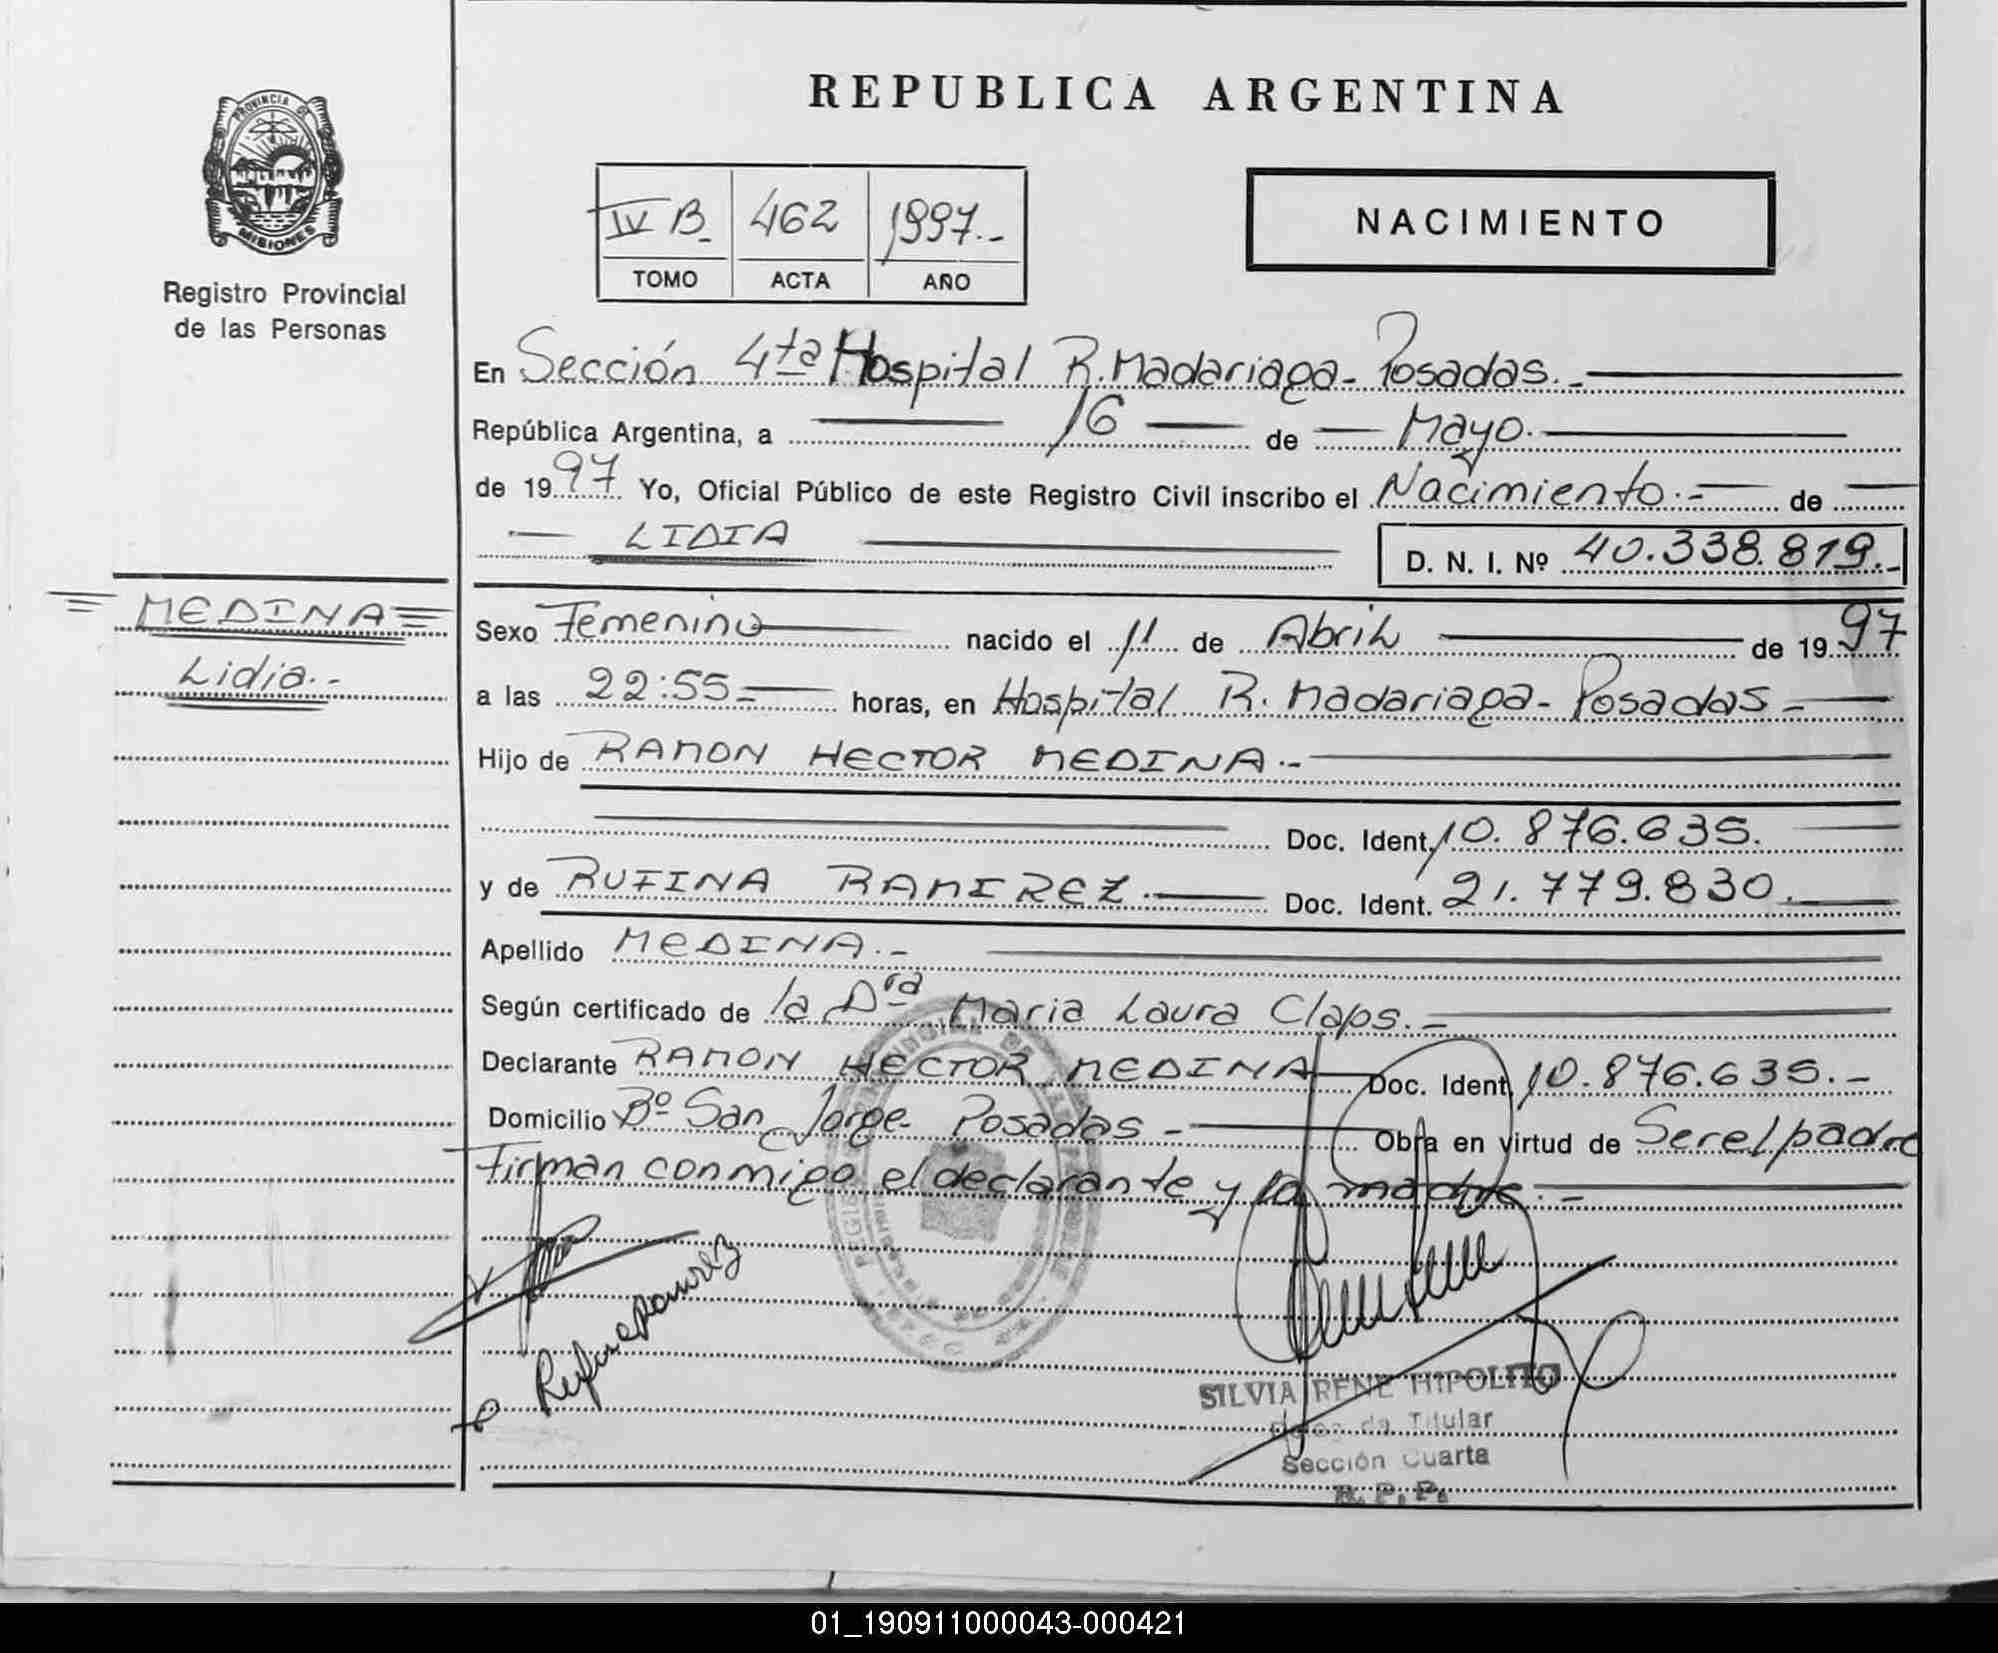 REPUBLICA ARGENTINA
PROVINCIA DE
MISIONES
Registro Provincial
de las Personas
IV B. 462 1997.-
TOMO ACTA AÑO
NACIMIENTO
En Sección 4ta Hospital R. Madariaga - Posadas. -
República Argentina, a 16 de Mayo.
de 1997 Yo, Oficial Público de este Registro Civil inscribo el Nacimiento.- de
LIDIA
D. N. I. Nº 40.338.819.-
MEDINA
Lidia.-
Sexo Femenino nacido el 11 de Abril de 1997
a las 22:55 horas, en Hospital R. Madariaga - Posadas -
Hijo de RAMON HECTOR MEDINA.-
Doc. Ident. 10.876.635.
y de RUFINA RAMIREZ. Doc. Ident. 21.779.830.
Apellido MEDINA.-
Según certificado de la Dra Maria Laura Claps.-
Declarante RAMON HECTOR MEDINA Doc. Ident. 10.876.635.-
Domicilio Bº San Jorge - Posadas - Obra en virtud de Ser el padre
Firman conmigo el declarante y la madre.-
Ramirez
SILVIA RENE HIPOLITO
Titular
Sección Cuarta
R. P. P.
01_190911000043-000421